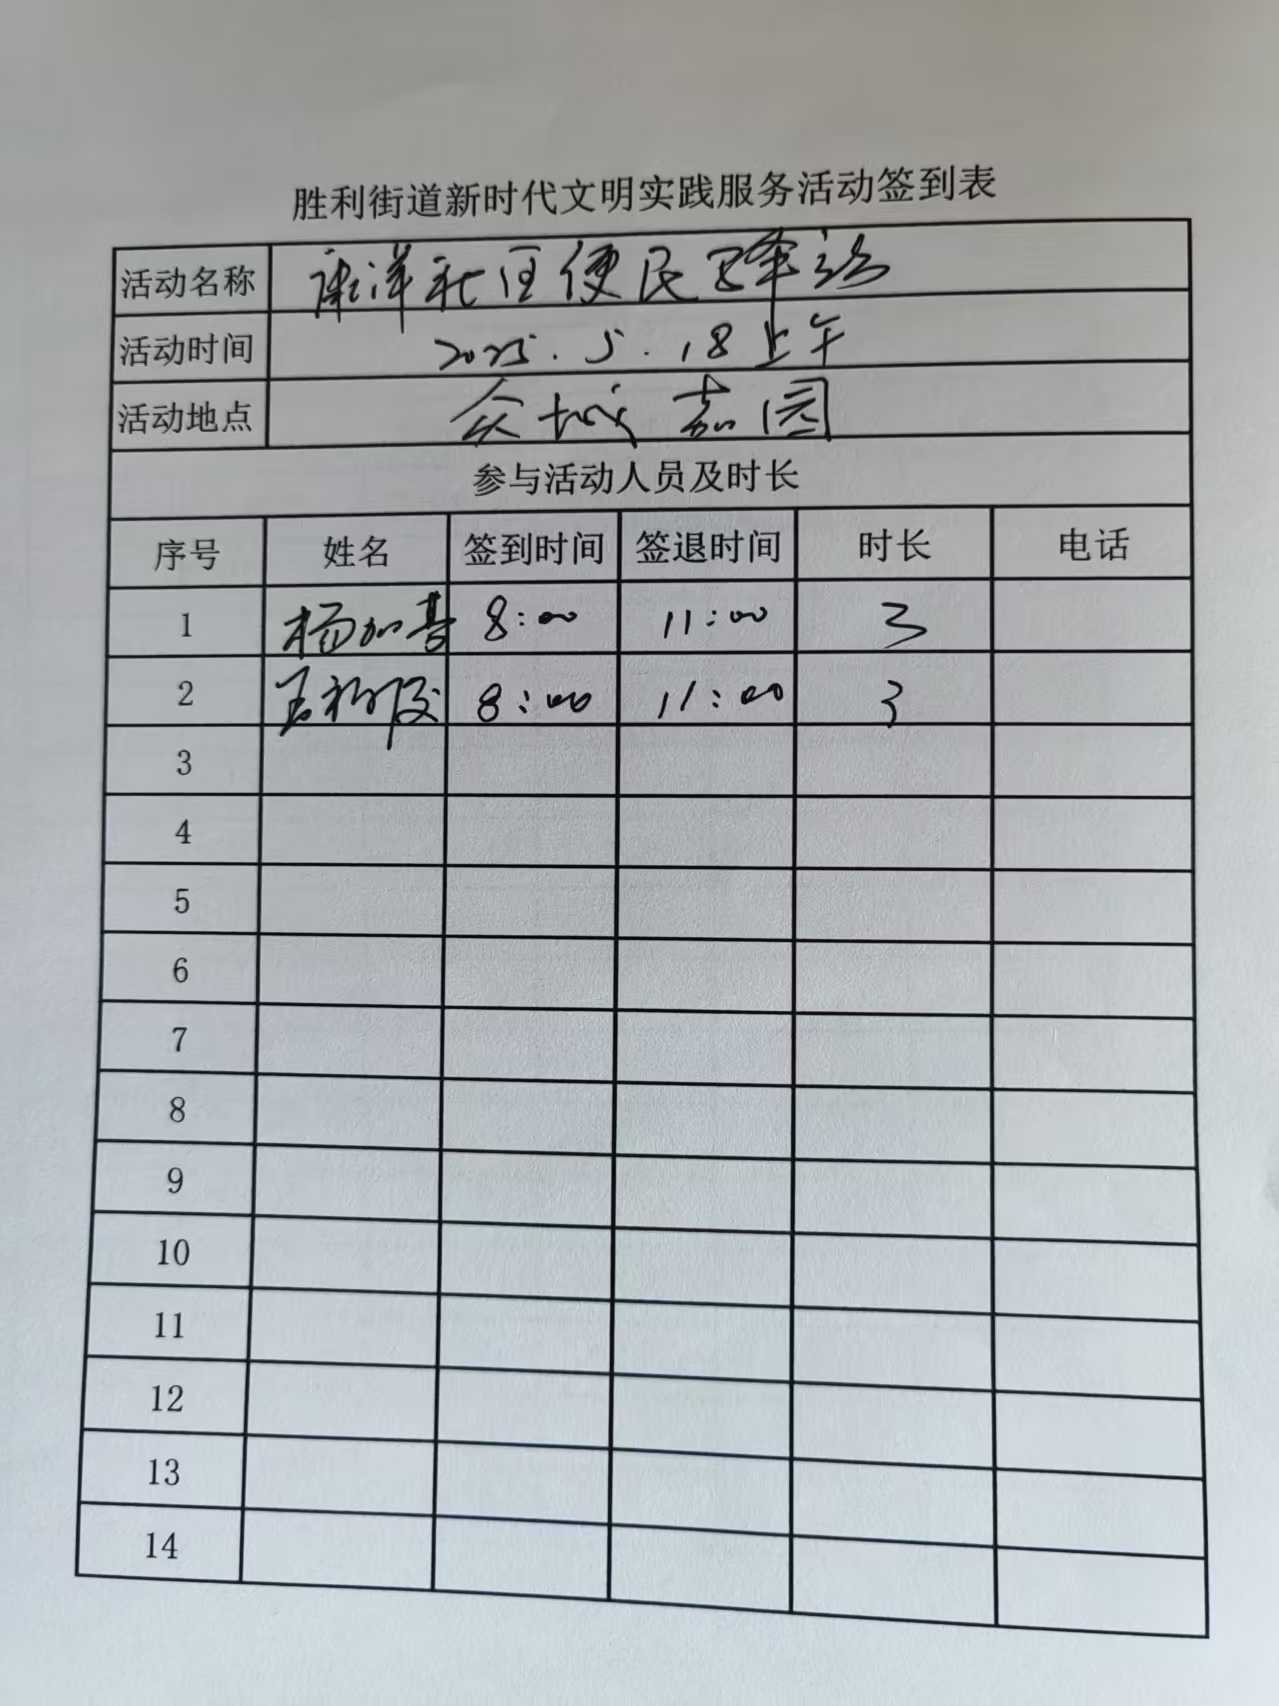 胜利街道新时代文明实践服务活动签到表
活动名称 社区便民
活动时间 2025.5.18上午
活动地点 众城嘉园
参与活动人员及时长
序号 姓名 签到时间 签退时间 时长 电话
1 杨加喜 8:00 11:00 3
2 8:00 11:00 3
3
4
5
6
7
8
9
10
11
12
13
14